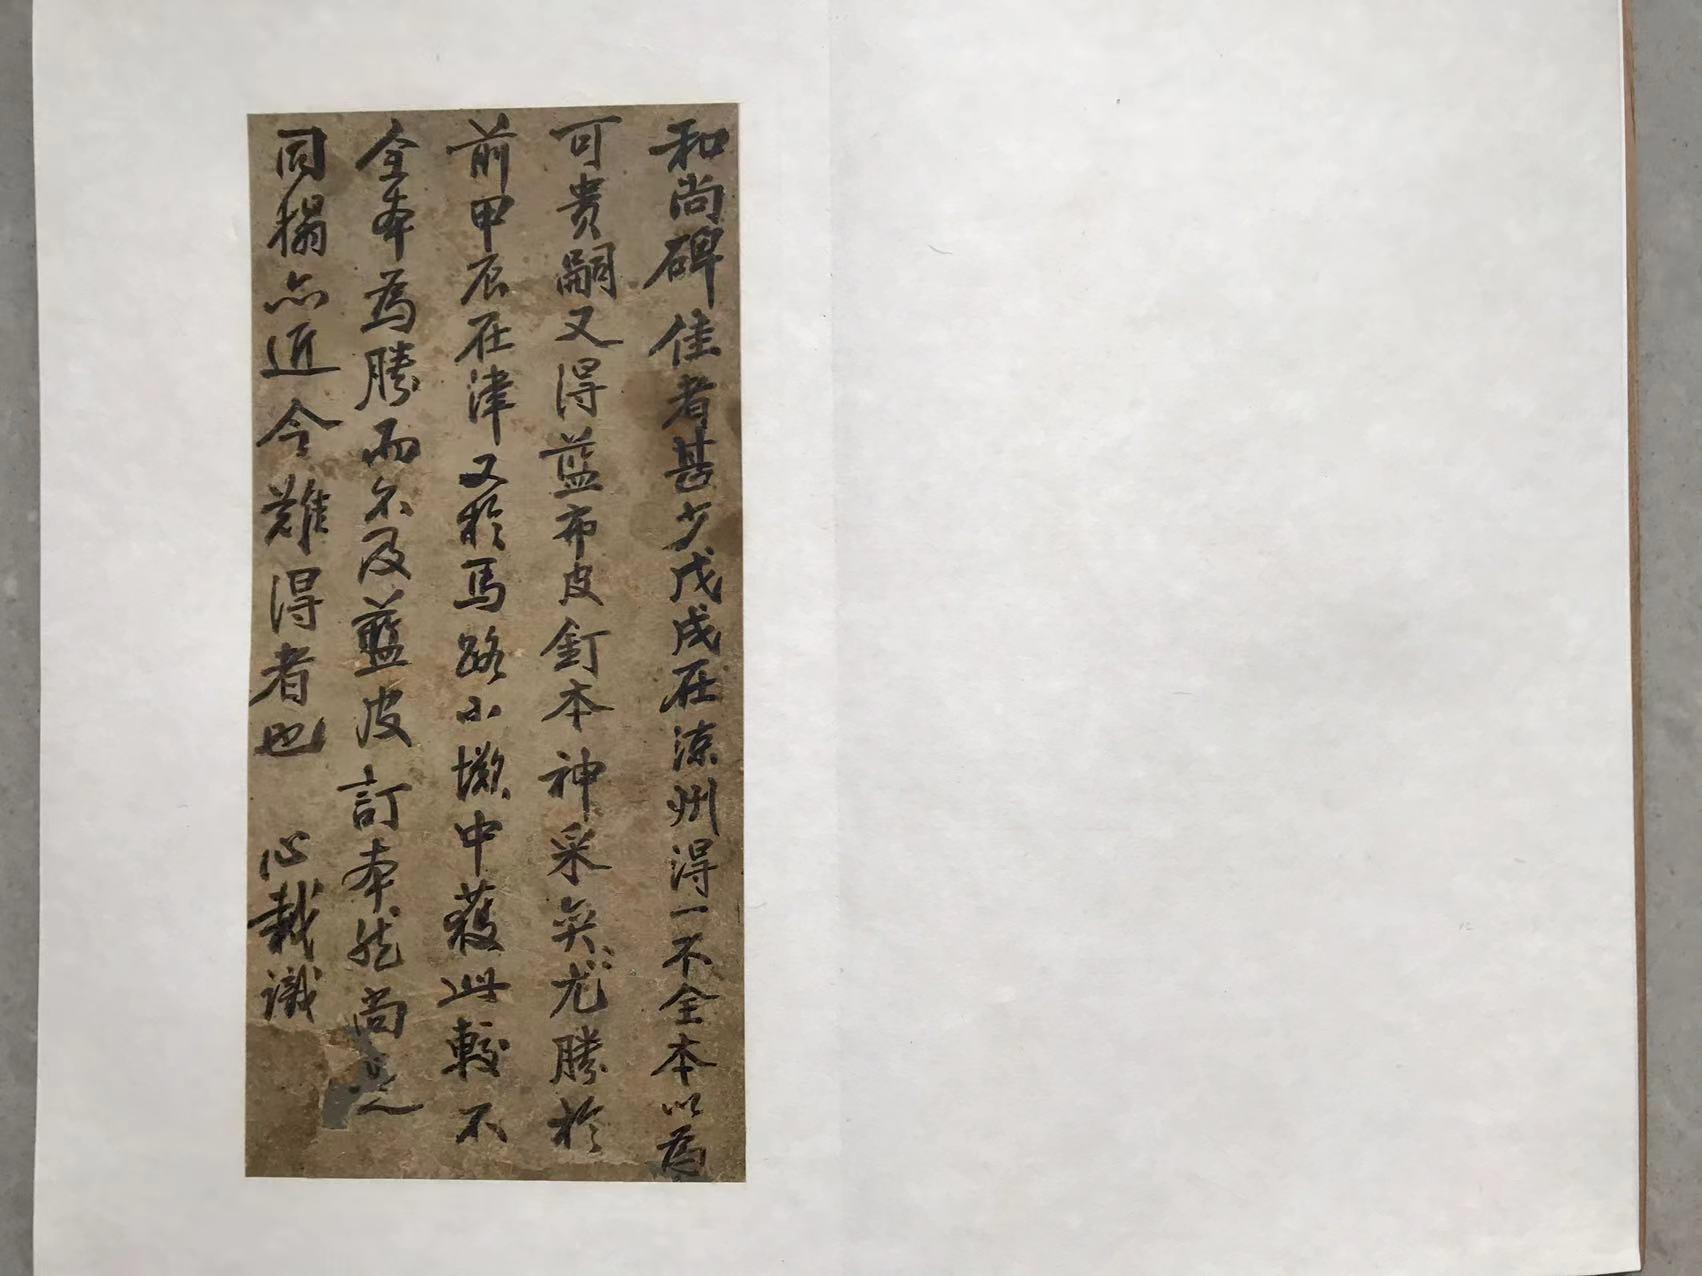 和尚碑佳者甚少戊戌在涼州得一不全本以爲
可贵嗣又得蓝布皮釘本神采奕〻尤勝於
前甲辰在津又於馬路小攤中获此較不
全本為勝而不及藍皮訂本然尚是
同榻亦近今難得者也 心栽識